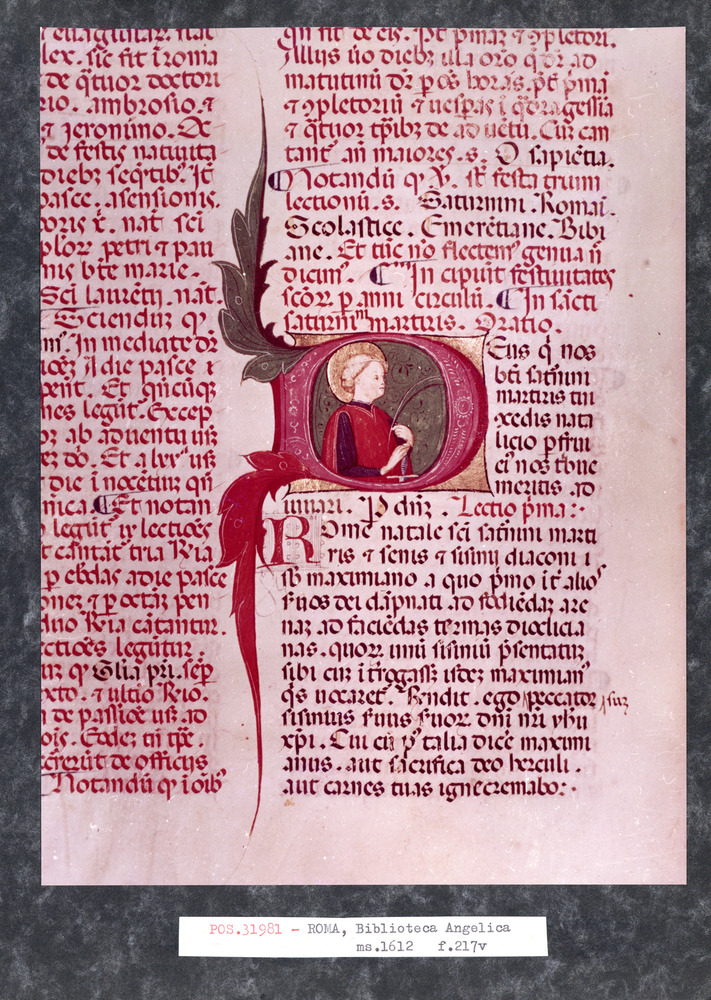 lex. sic fit ĩ roma
de q̃tuor doctori
rio. ambrosio. ⁊
⁊ jeronimo. De
de festis natiuita
diebꝫ seq̃tibꝰ. It
pasce. asensionis.
oris ⁊. nat̃ sci
plor̃ petri ⁊ pau
nis bt̃e marie.
Sci laurẽtij. nat̃.
Sciendũ ꝙ.
m̃. In mediate dr̃
Il die pasce ⁊
pent̃. Et qñcũq̃
nes legũt. Excep
or ab aduentu usꝫ
Et a lxxᵃ usꝫ
die ĩnocẽtiũ qñ
nica. Et notan
legũt ix lectiões
t cãnitat̃ tria R̃ia
p ebdas a die pasce
onez ⁊ p octã pen
duo R̃ia cãtantur.
ctiões legũtur.
ur ꝙ Gl̃ia pr̃i. sep̃
xto. ⁊ ultio R̃io.
de passiõe usꝫ ad
ois. Eodez tñ tp̃e.
de officijs
Notandũ ꝙ ĩ oĩbꝰ
qñ fit de eis. Pt̃ pmaz ⁊ ꝯpletori.
Illius ũo diebꝫ illa oro q̃ dr̃ ad
matutinũ dr̃ p oẽs horas. pt̃ pmã
⁊ ꝯpletoriũ ⁊ uesp̃as ĩ q̃dragessia
⁊ q̃tuor tp̃ibꝫ de aduẽtu. Cũ can
tant̃ añ maiores. s. O sapiẽtia.
Notandũ ꝙ ꝟ. st̃ festa trium
lectionũ. s. Saturnini. Romai.
Scolastice. Emerẽtiane. Bibi
ane. Et tũc nõ flectem̃ genua ñ
dicim̃. In cipiũt festiuitates
scõr̃ p anni circulũ. In sãcti
saturnini martiris. Oratio.
Deus q̃ nos
bt̃i saturnini
martiris tui
ꝯcedis nata
licio pfrui
eiꝰ nos tribue
meritis ad
iuuari. P dñz. Lectio pma:·
Rome natale sci saturnini marti
ris ⁊ senis ⁊ sisinij diaconi ĩ
sb̃ maximiano a quo pmo iĩ alioˢ
suos dei dãpnati ad fodiẽdas are
nas ad faciẽdas termas dioclicia
nas. quor̃ unũ sisiniũ p̃sentatur
sibi cũ ĩtrogass̃ istez maximianꝰ
q̃s uocaret̃. Rñdit. ego peccator
sisinius seruus seruor̃ dñi nr̃i yh̃u
xp̃i. Cui cũ pꝰ talia dicẽ maximi
anus. aut sacrifica deo herculi.
aut carnes tuas igne cremabo:·
POS.31981 - ROMA, Biblioteca Angelica
ms.1612 f.217v